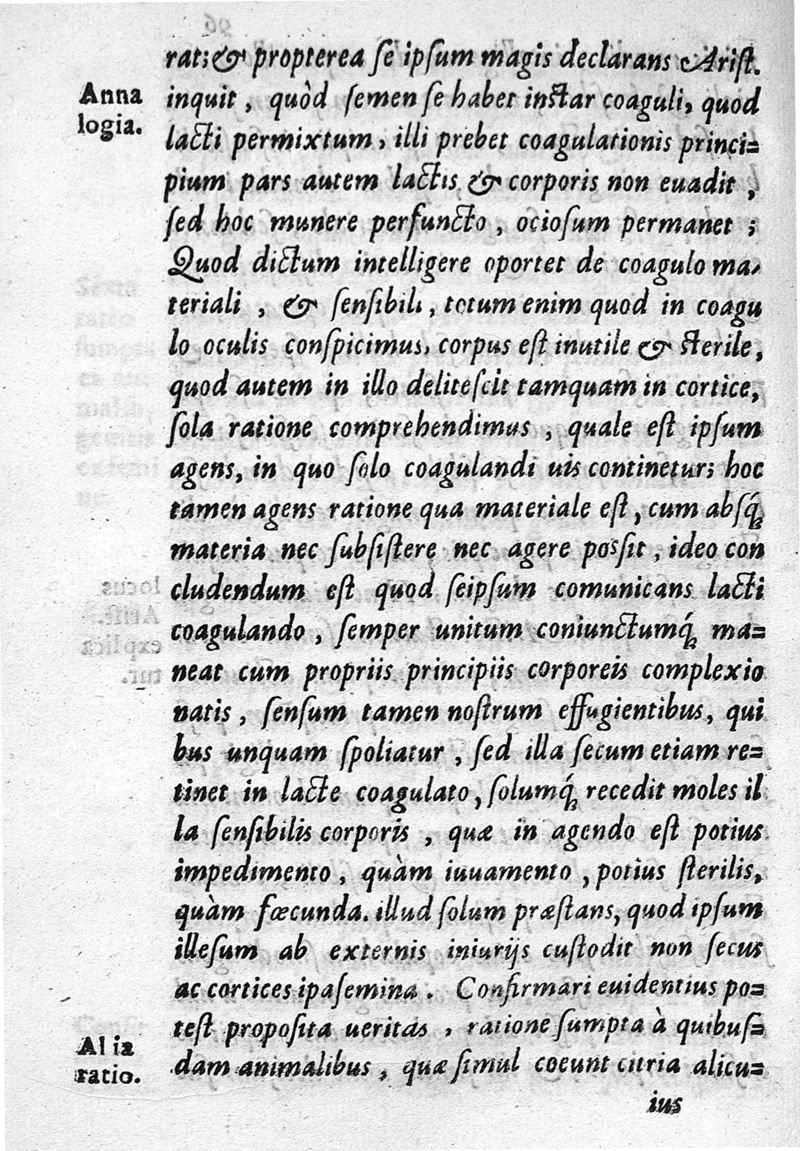 rat; & propterea se ipsum magis declarans Arist.
Anna
logia.
inquit, quòd semen se habet instar coaguli, quod
lacti permixtum, illi prebet coagulationis princi=
pium pars autem lactis & corporis non euadit,
sed hoc munere perfuncto, ociosum permanet;
Quod dictum intelligere oportet de coagulo ma-
teriali, & sensibili, totum enim quod in coagu
lo oculis conspicimus, corpus est inutile & sterile,
quod autem in illo delitescit tamquam in cortice,
sola ratione comprehendimus, quale est ipsum
agens, in quo solo coagulandi uis continetur; hoc
tamen agens ratione qua materiale est, cum absq́;
materia nec subsistere nec agere possit, ideo con
cludendum est quod seipsum comunicans lacti
coagulando, semper unitum coniunctumq́; ma=
neat cum propriis principiis corporeis complexio
natis, sensum tamen nostrum effugientibus, qui
bus unquam spoliatur, sed illa secum etiam re=
tinet in lacte coagulato, solumq́; recedit moles il
la sensibilis corporis, quæ in agendo est potius
impedimento, quàm iuuamento, potius sterilis,
quàm fœcunda. illud solum præstans, quod ipsum
illesum ab externis iniurijs custodit non secus
ac cortices ipasemina. Confirmari euidentius po=
test proposita ueritas, ratione sumpta à quibus=
Alia
ratio.
dam animalibus, quæ simul coeunt citria alicu=
ius